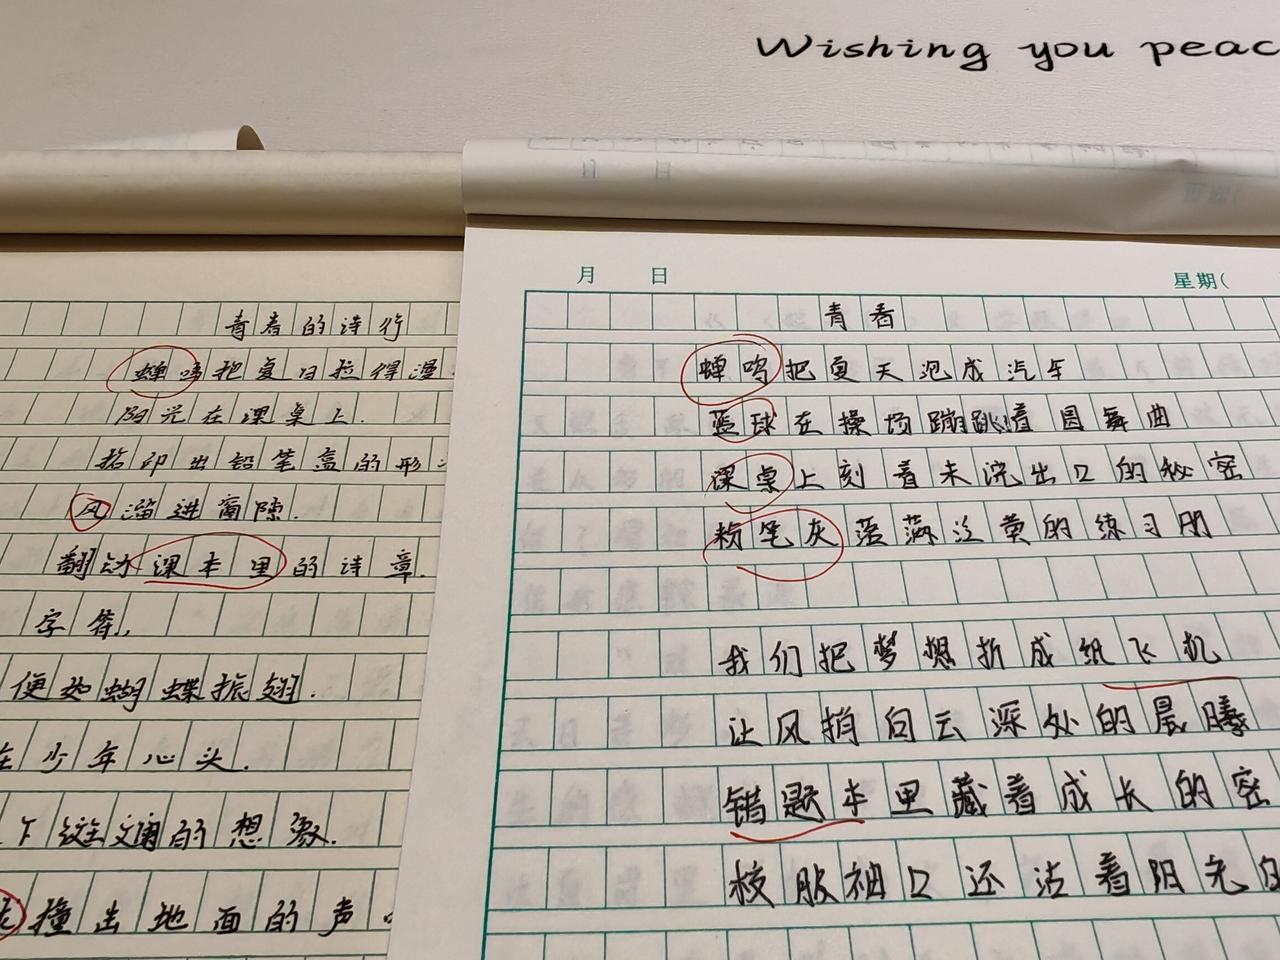 Wishing you peac
青春的诗行
蝉鸣把夏日拉得漫
阳光在课桌上.
拓印出铅笔盒的形
风溜进窗隙.
翻动课本里的诗章.
字符,
便如蝴蝶振翅.
在少年心头.
下 的想象.
撞击地面的声
月 日 星期(
青春
蝉鸣把夏天泡成汽车
篮球在操场蹦跳着圆舞曲
课桌上刻着未说出口的秘密
粉笔灰落满泛黄的练习册
我们把梦想折成纸飞机
让风捎向云深处的晨曦
错题本里藏着成长的密
校服袖口还沾着阳光的